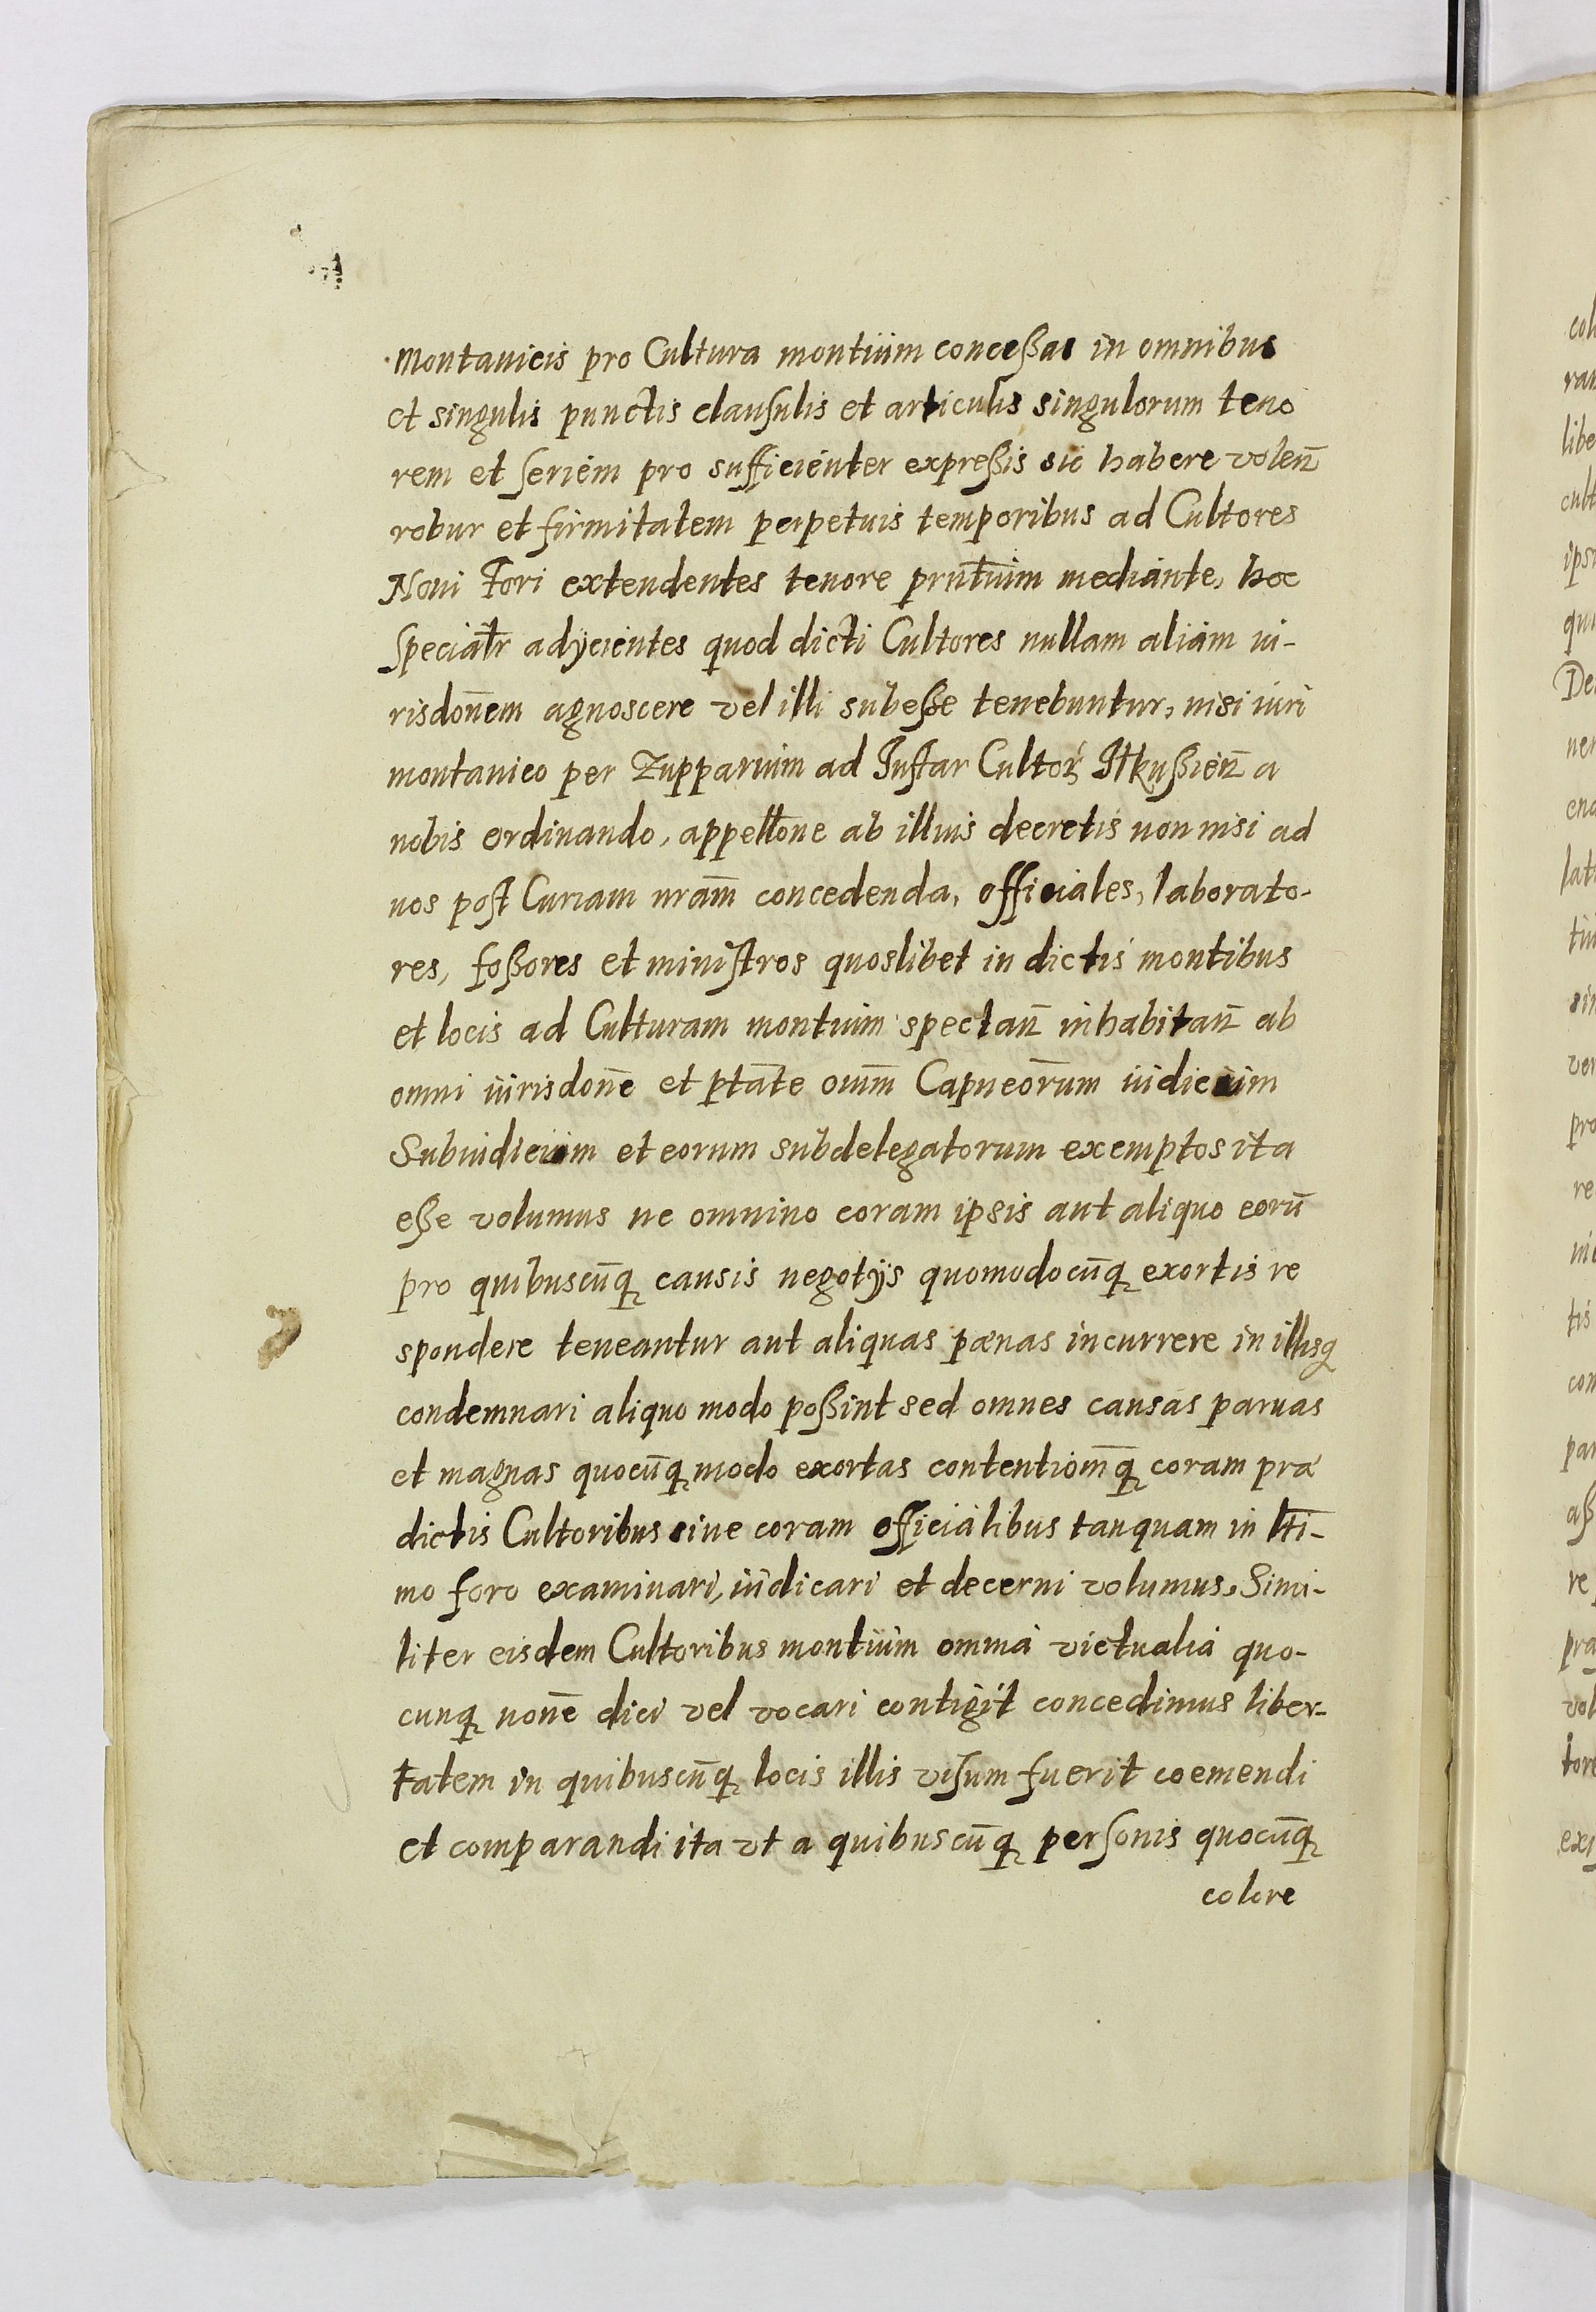 Montanicis pro Cultura montium conceßas in omnibus
et singulis punctis clauſulis et articulis singulorum teno
rem et ſeriem pro sufficienter expreßis sic habere volen̄
robur et firmitatem perpetuis temporibus ad Cultores
Noui Fori extendentes tenore prn̄tium mediante, hoc
ſpecialr̄ adÿcientes quod dicti Cultores nullam aliam iu-
risdon̄em agnoscere vel illi subeße tenebuntur, nisi iuri
montanico per Zupparium ad Inſtar Cultoꝝ Ilkußien̄ a
nobis ordinando, appell̄one ab illius decretis non nisi ad
nos poſt Curiam nr̄am concedenda, officiales, laborato-
res, foßores et miniſtros quoslibet in dictis montibus
et locis ad Culturam montium spectan̄ inhabitan̄ ab
omni iurisdon̄e et ptāte om̄m Capneōrum iudicum
Subiudicum et eorum subdelegatorum exemptos ita
eße volumus ne omnino coram ipsis aut aliquo eorū
pro quibuscūq, causis negotÿs quomodocūq, exortis re
spondere teneantur aut aliquas pœnas incurrere in illisq
condemnari aliquo modo poßint sed omnes causas paruas
et magnas quocūq, modo exortas contentiom̄q, coram præ
dictis Cultoribus siue coram officialibus tanquam in ltī-
mo foro examinari, iudicari et decerni volumus. Simi-
liter eisdem Cultoribus montium omnia victualia quo-
cunq, non̄e dici vel vocari contigit concedimus liber-
tatem in quibuscūq, locis illis viſum fuerit coemendi
et comparandi ita vt a quibuscūq, perſonis quocūq,
colore